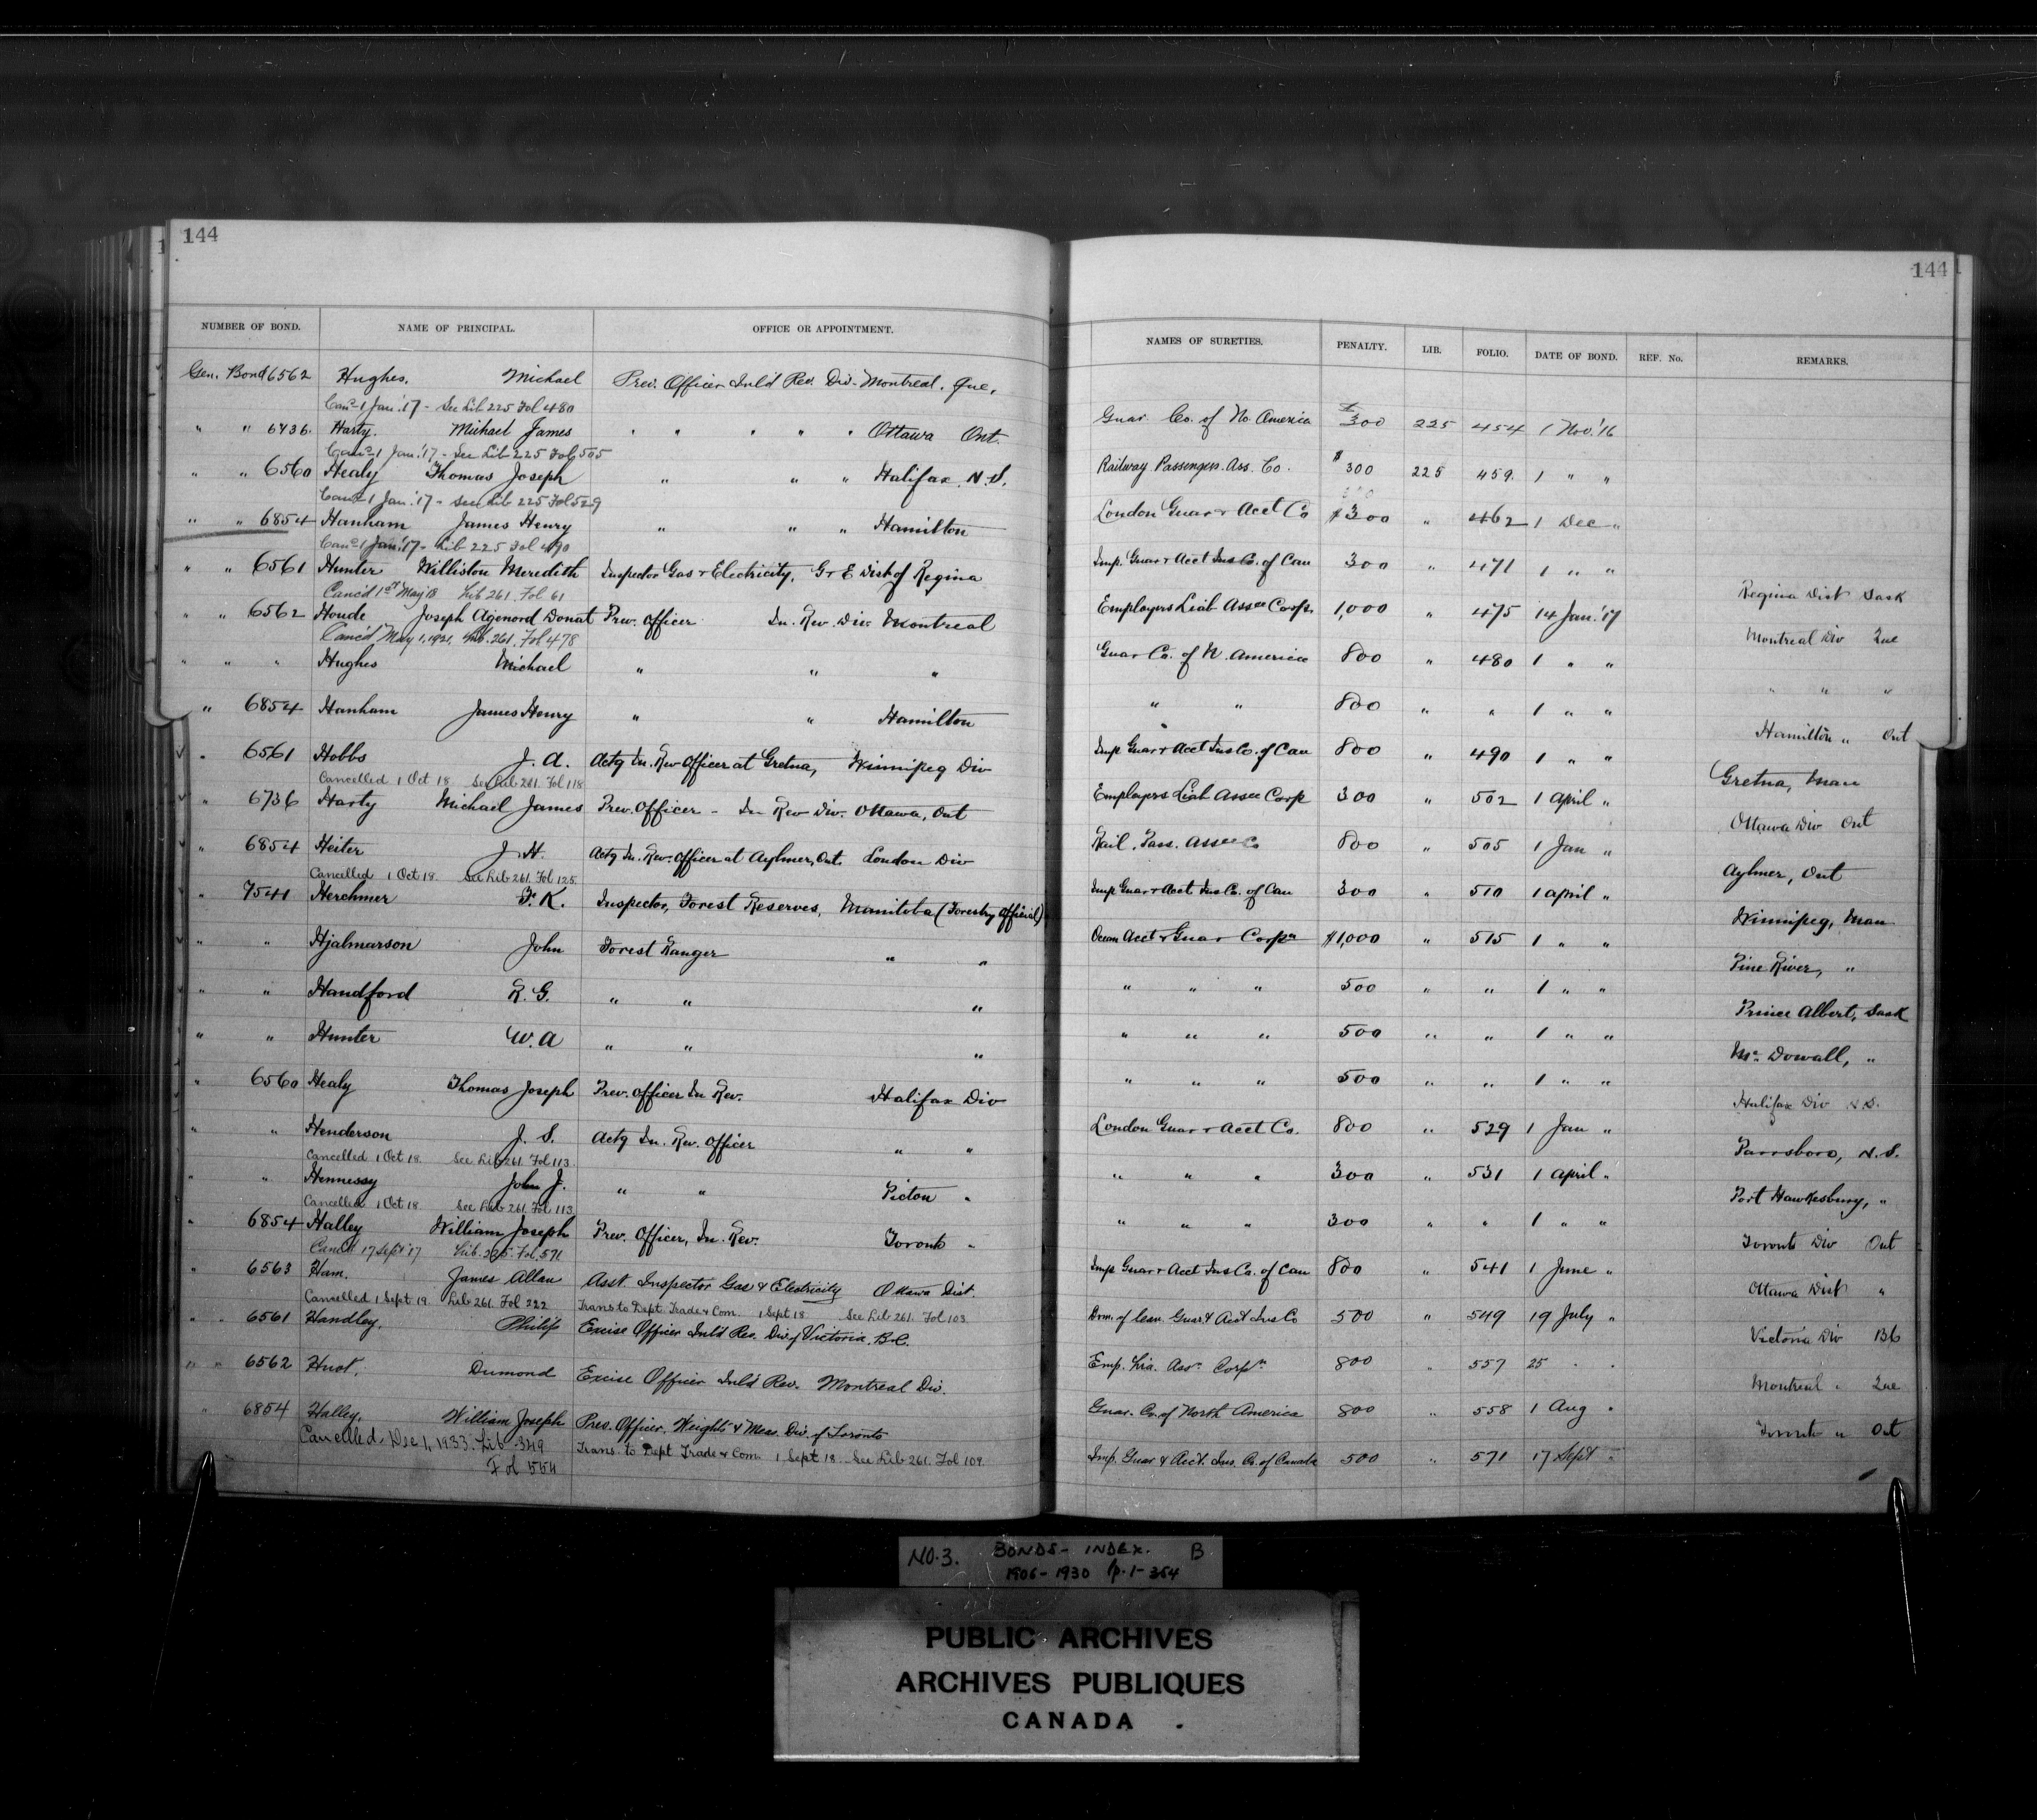 144
NUMBER OF BOND. NAME OF PRINCIPAL. OFFICE OR APPOINTMENT.
Gen. Bond 6562 Hughes, Michael Prev. Officer Inl'd Rev. Div. Montreal, Que.
Canc 1 Jan. '17 - See Lib 225 Fol 480
" " 6736. Harty. Michael James " " " " " Ottawa Ont.
Canc 1 Jan. '17 - See Lib 225 Fol 505
" " 6560 Healy Thomas Joseph " " " Halifax, N.S.
Canc 1 Jan. '17 - See Lib 225 Fol 529
" " 6854 Hanham James Henry " " " Hamilton
Canc 1 Jan. '17 - Lib 225 Fol 490
" " 6561 Hunter Williston Meredith Inspector Gas & Electricity, G & E Dist of Regina
Canc'd 1st May 18 Lib 261. Fol 61
" " 6562 Houde Joseph Agenord Donat Prev. Officer In. Rev. Div. Montreal
Canc'd May 1, 1921, Lib. 261. Fol 478
" " " Hughes Michael " " "
" 6854 Hanham James Henry " " Hamilton
" 6561 Hobbs J. A. Actg In. Rev Officer at Gretna, Winnipeg Div
Cancelled 1 Oct 18 See Lib 261. Fol 118
" 6736 Harty Michael James Prev. Officer - In Rev Div. Ottawa, Ont
" 6854 Heiter J. H. Actg In. Rev. Officer at Aylmer, Ont. London Div
Cancelled 1 Oct 18. See Lib 261. Fol 125.
" 7541 Herchmer F. K. Inspector, Forest Reserves, Manitoba (Forestry Official)
" " Hjalmarson John Forest Ranger " "
" " Handford R. G. " " "
" " Hunter W. A " " "
" 6560 Healy Thomas Joseph Prev. Officer In Rev. Halifax Div
" " Henderson J. S. Actg In. Rev. Officer " "
Cancelled 1 Oct 18. See Lib 261. Fol 113.
" " Hennessy John J. " " Pictou "
Cancelled 1 Oct 18 See Lib 261. Fol 113
" 6854 Halley William Joseph Prev. Officer, In. Rev. Toronto "
Canc'd 17 Sept '17 Lib. 225. Fol. 571
" 6563 Ham. James Allan Asst. Inspector Gas & Electricity Ottawa Dist.
Cancelled 1 Sept 19 Lib 261. Fol 222 Trans to Dept. Trade & Com. 1 Sept 18 See Lib 261. Fol 103
" " 6561 Handley, Philip Excise Officer Inl'd Rev. Div of Victoria, B.C.
" " 6562 Huot, Dumond Excise Officer Inl'd Rev. Montreal Div.
" 6854 Halley, William Joseph Prev. Officer, Weights & Meas. Div. of Toronto
Cancelled, Dec 1, 1933. Lib 349 Trans. to Dept Trade & Com. 1 Sept 18. See Lib 261. Fol 104
Fol 554
144
NAMES OF SURETIES. PENALTY. LIB. FOLIO. DATE OF BOND. REF. No. REMARKS.
Guar. Co. of No. America $300 225 454 1 Nov. '16
Railway Passengers Ass. Co. $300 225 459. 1 " "
London Guar & Acct Co $300 " 462 1 Dec "
Imp. Guar & Acct Ins Co. of Can 300 " 471 1 " "
Employers Liab Assce Corp. 1,000 " 475 14 Jan. '17 Regina Dist Sask
Guar Co. of N. America 800 " 480 1 " " Montreal Div Que
" " 800 " " 1 " " " " "
Imp Guar & Acct Ins Co. of Can 800 " 490 1 " " Hamilton " Ont
Employers Liab Assce Corp 300 " 502 1 April " Gretna, Man
Rail. Pass. Assce Co 800 " 505 1 Jan " Ottawa Div Ont
Imp Guar & Acct Ins Co. of Can 300 " 510 1 April " Aylmer, Ont
Ocean Acct & Guar Corpn $1,000 " 515 1 " " Winnipeg, Man
" " " 500 " " 1 " " Pine River, "
" " " 500 " " 1 " " Prince Albert, Sask
" " " 500 " " 1 " " Mc Dowall, "
London Guar & Acct Co. 800 " 529 1 Jan " Halifax Div N.S.
" " " 300 " 531 1 April " Parrsboro, N.S.
" " " 300 " " 1 " " Port Hawkesbury, "
Imp Guar & Acct Ins Co. of Can 800 " 541 1 June " Toronto Div Ont
Dom. of Can. Guar. & Acct Ins Co 500 " 549 19 July " Ottawa Dist "
Emp. Lia. Assn. Corpn. 800 " 557 25 " " Victoria Div BC
Guar. Co. of North America 800 " 558 1 Aug " Montreal " Que
Imp. Guar & Acct. Ins. Co. of Canada 500 " 571 17 Sept " Toronto " Ont
NO. 3. BONDS - INDEX. B
1906 - 1930 p. 1 - 354
PUBLIC ARCHIVES
ARCHIVES PUBLIQUES
CANADA